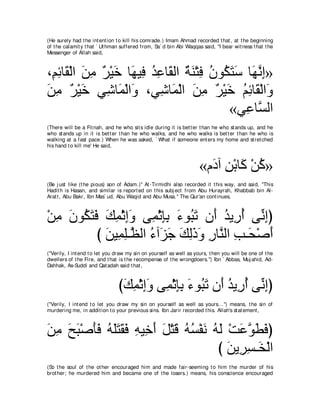 (He surely had the intention to kill his comrade.) Imam Ahmad recorded that, at the beginning
of the calamity that `Uthman suffered from, Sa`d bin Abi Waqqas said, "I bear witness that the
Messenger of Allah said,
«إِنَّهَا سَتَكُونُ فِتْنَةٌ الْقَاعِدُ فِيهَا خَيْرٌ مِنَ الْقَائِمِ،
وَالْقَائِمُ خَيْرٌ مِنَ الْمَاشِي، وَالْمَاشِي خَيْرٌ مِنَ
السَّاعِي»
(There will be a Fitnah, and he who sits idle during it is better than he who stands up, and he
who stands up in it is better than he who walks, and he who walks is better than he who is
walking at a fast pace.) When he was asked, `What if someone enters my home and stretched
his hand to kill me' He said,
«كُنْ كَابْنِ آدَم»
(Be just like (the pious) son of Adam.)" At-Tirmidhi also recorded it this way, and said, "This
Hadith is Hasan, and similar is reported on this subject from Abu Hurayrah, Khabbab bin Al-
Aratt, Abu Bakr, Ibn Mas`ud, Abu Waqid and Abu Musa." The Qur'an continues,
(إِنِّى أُرِيدُ أَن تَبُوءَ بِإِثْمِى وَإِثْمِكَ فَتَكُونَ مِنْ
أَصْحَـبِ النَّارِ وَذَلِكَ جَزَآءُ الظَّـلِمِينَ )
("Verily, I intend to let you draw my sin on yourself as well as yours, then you will be one of the
dwellers of the Fire, and that is the recompense of the wrongdoers.") Ibn `Abbas, Mujahid, Ad-
Dahhak, As-Suddi and Qatadah said that,
(إِنِّى أُرِيدُ أَن تَبُوءَ بِإِثْمِى وَإِثْمِكَ)
("Verily, I intend to let you draw my sin on yourself as well as yours...") means, the sin of
murdering me, in addition to your previous sins. Ibn Jarir recorded this. Allah's statement,
(فَطَوَّعَتْ لَهُ نَفْسُهُ قَتْلَ أَخِيهِ فَقَتَلَهُ فَأَصْبَحَ مِنَ
الْخَـسِرِينَ )
(So the soul of the other encouraged him and made fair-seeming to him the murder of his
brother; he murdered him and became one of the losers.) means, his conscience encouraged